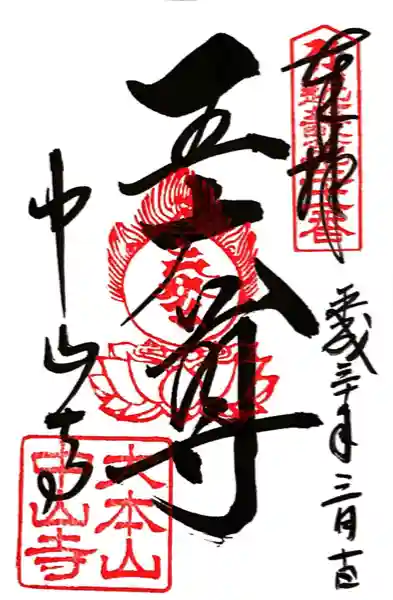 奉拝
平成三十年三月十一日
五大尊
中山寺
大本山
中山寺